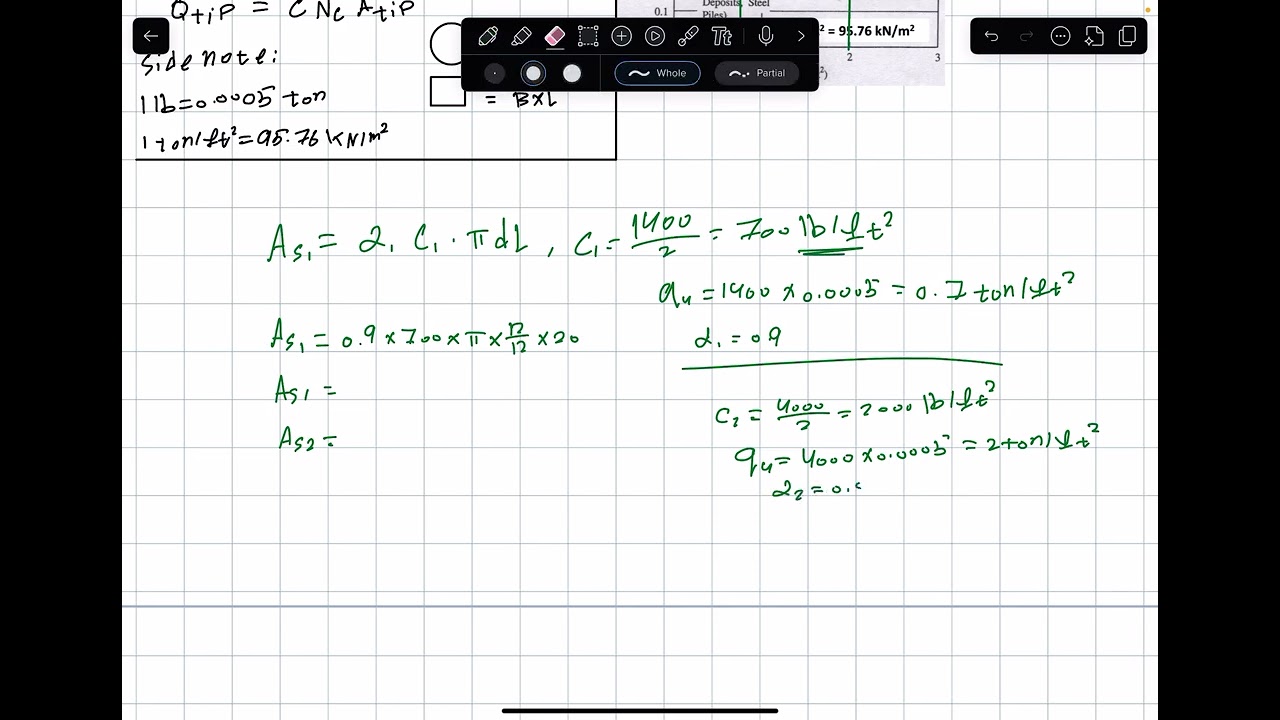 Qtip = C Nc Atip
Side note:
1 lb = 0.0005 ton
1 ton/ft² = 95.76 KN/m²
= B×L
0.1
Deposits, Steel
Piles)
² = 95.76 kN/m²
2
3
²)
Tt
Whole
Partial
As₁ = α₁ C₁ · π d L , C₁ = 1400/2 = 700 lb/ft²
qu = 1400 × 0.0005 = 0.7 ton/ft²
As₁ = 0.9 × 700 × π × 12/12 × 20
α₁ = 0.9
As₁ =
C₂ = 4000/2 = 2000 lb/ft²
As₂ =
qu = 4000 × 0.0005 = 2 ton/ft²
α₂ = 0.